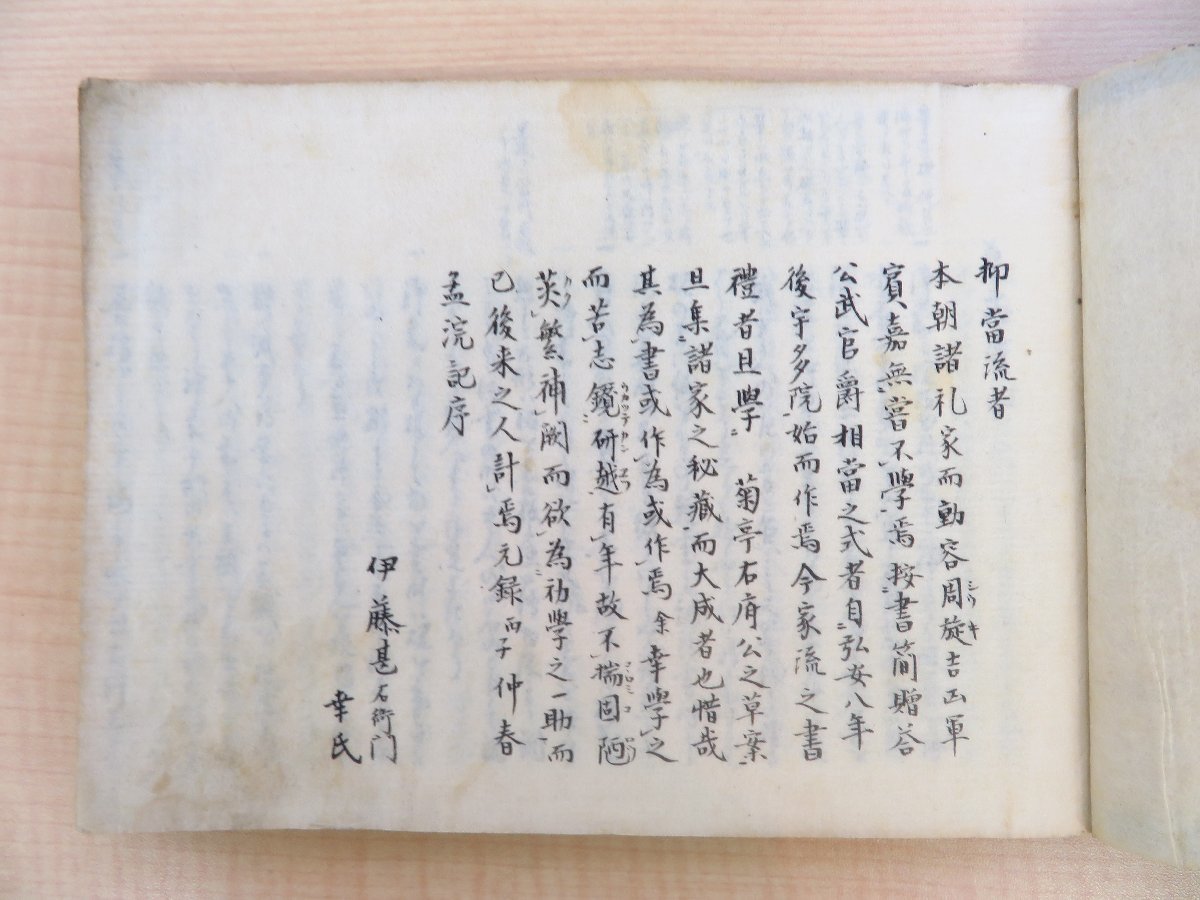 抑當流者
本朝諸礼家而動容周旋吉凶軍
賓嘉無嘗不學焉按書簡贈答
公武官爵相當之式者自弘安八年
後宇多院始而作焉今家流之書
禮者且學 菊亭右府公之草案
且集諸家之秘藏而大成者也惜哉
其為書或作為或作焉余幸學之
而苦志鑽研越有年故不揣固陋
芟繁神闕而欲為初學之一助而
已後来之人計焉元録丙子仲春
孟浣記序
伊藤甚右衛门
幸氏